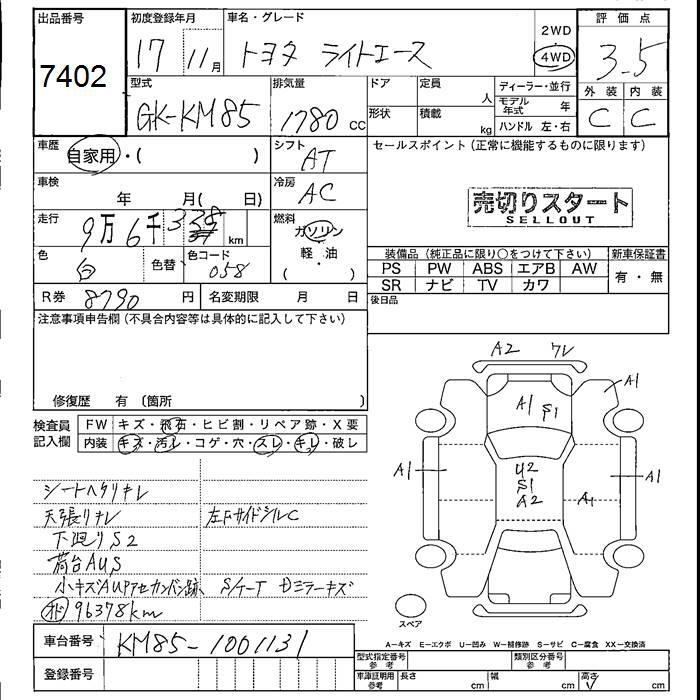 出品番号 初度登録年月 車名・グレード 2WD 評価点
7402 17 11月 トヨタ ライトエース 4WD 3.5
型式 排気量 ドア 定員 人 ディーラー・並行 外装 内装
GK-KM85 1780 cc 形状 積載 kg モデル年式 年 C C
ハンドル 左・右
車歴 自家用・( ) シフト AT セールスポイント(正常に機能するものに限ります)
車検 年 月( 日) 冷房 AC 売切りスタート
SELLOUT
走行 9万6千 km 燃料 ガソリン
色 白 色替 色コード 058 軽・油 装備品(純正品に限り○をつけて下さい) 新車保証書
PS PW ABS エアB AW 有・無
R券 8790円 名変期限 月 日 SR ナビ TV カワ
注意事項申告欄(不具合内容等は具体的に記入して下さい) 後日品
修復歴 有(箇所 )
検査員 FW キズ・飛石・ヒビ割・リペア跡・X要
記入欄 内装 キズ・汚レ・コゲ・穴・スレ・キレ・破レ
シートヘタリキレ
天張リキレ 左FサイドシルC
下廻りS2
荷台AUS
オド 96378km
車台番号 KM85-1001131
登録番号
A2 ワレ
A1
A1 S1
A1 U2 A1
S1
A2 A1
スペア
A-キズ E-エクボ U-凹み W-補修跡 S-サビ C-腐食 XX-交換済
型式指定番号 参考 類別区分番号 参考
車庫証明用 参考 長さ cm 幅 cm 高さ cm